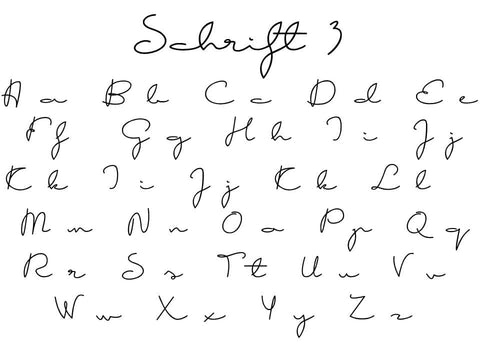 Schrift 3
A a B b C c D d E e
F f G g H h I i J j
K k I i J j K k L l
M m N n O a P p Q q
R r S s T t U u V v
W w X x Y y Z z